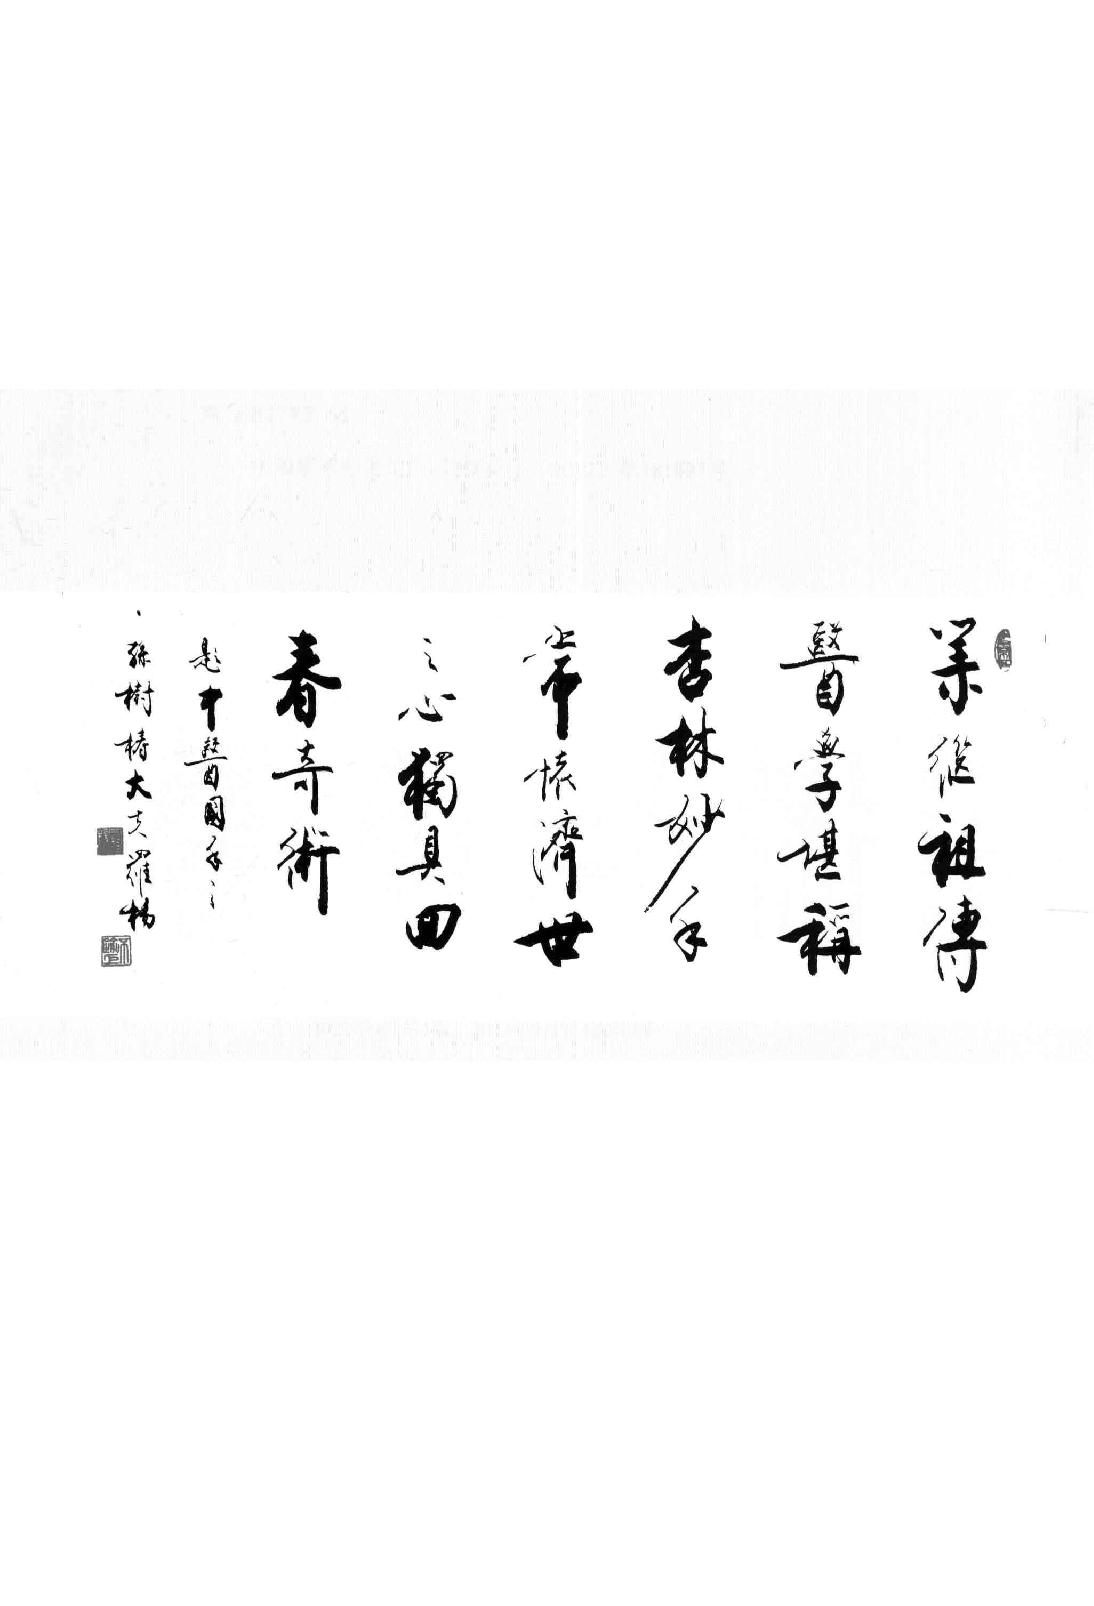 業從祖傳
醫學堪稱
杏林妙手
常懷濟世
之心獨具回
春奇術
題中醫國手
孫樹椿大夫羅楊